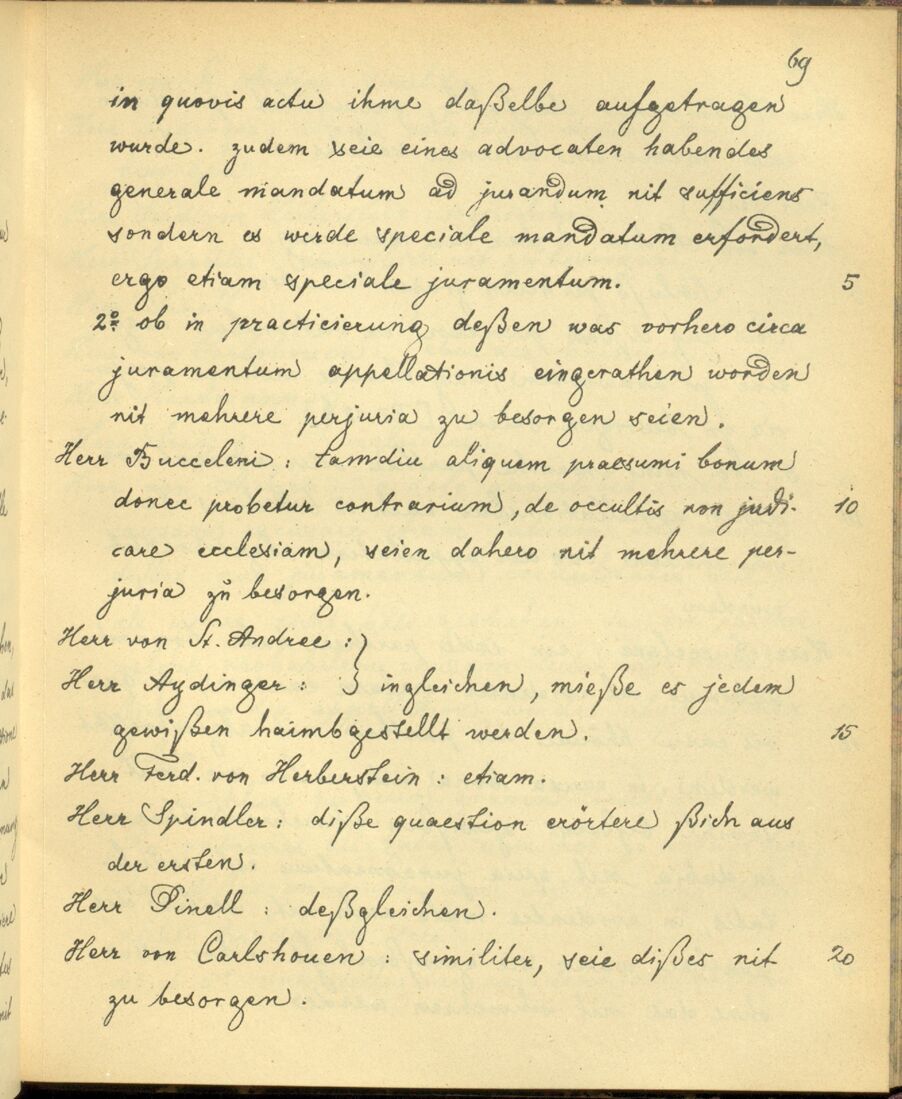 69
in quovis actu ihme daßelbe aufgetragen
wurde. zudem seie eines advocaten habendes
generale mandatum ad jurandum nit sufficiens
sondern es werde speciale mandatum erfordert,
ergo etiam speciale juramentum. 5
2º ob in practicierung deßen was vorhero circa
juramentum appellationis eingerathen worden
nit mehrere perjuria zu besorgen seien.
Herr Bucceleni: tamdiu aliquem praesumi bonum
donec probetur contrarium, de occultis non judi- 10
care ecclesiam, seien dahero nit mehrere per-
juria zu besorgen.
Herr von St. Andree: }
Herr Aydinger: } ingleichen, mieße es jedem
gewißen haimbgestellt werden. 15
Herr Ferd. von Herberstein: etiam.
Herr Spindler: diße quaestion erörtere ßich aus
der ersten.
Herr Pinell: deßgleichen.
Herr von Carlshouen: similiter, seie dißes nit 20
zu besorgen.